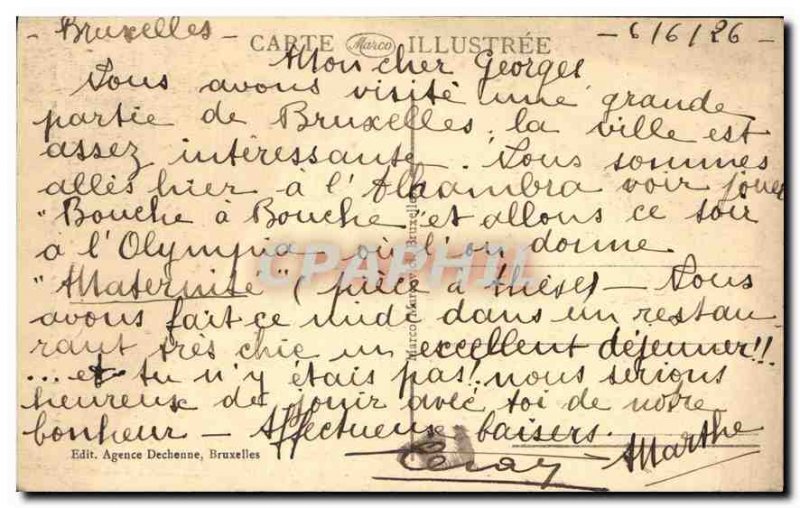 - Bruxelles -
CARTE Marco ILLUSTRÉE
- 6/6/26 -
Mon cher Georges
Nous avons visité une grande
partie de Bruxelles, la ville est
assez intéressante. Nous sommes
allés hier à l'Alhambra voir jouer
"Bouche à Bouche" et allons ce soir
à l'Olympia où l'on donne
"Maternité" (pièce à thèse) - Nous
avons fait ce midi dans un restau-
rant très chic un excellent déjeuner!!
... et tu n'y étais pas! nous serions
heureux de jouir avec toi de notre
bonheur - Affectueux baisers.
Marthe
Edit. Agence Dechenne, Bruxelles
CPAPHIL